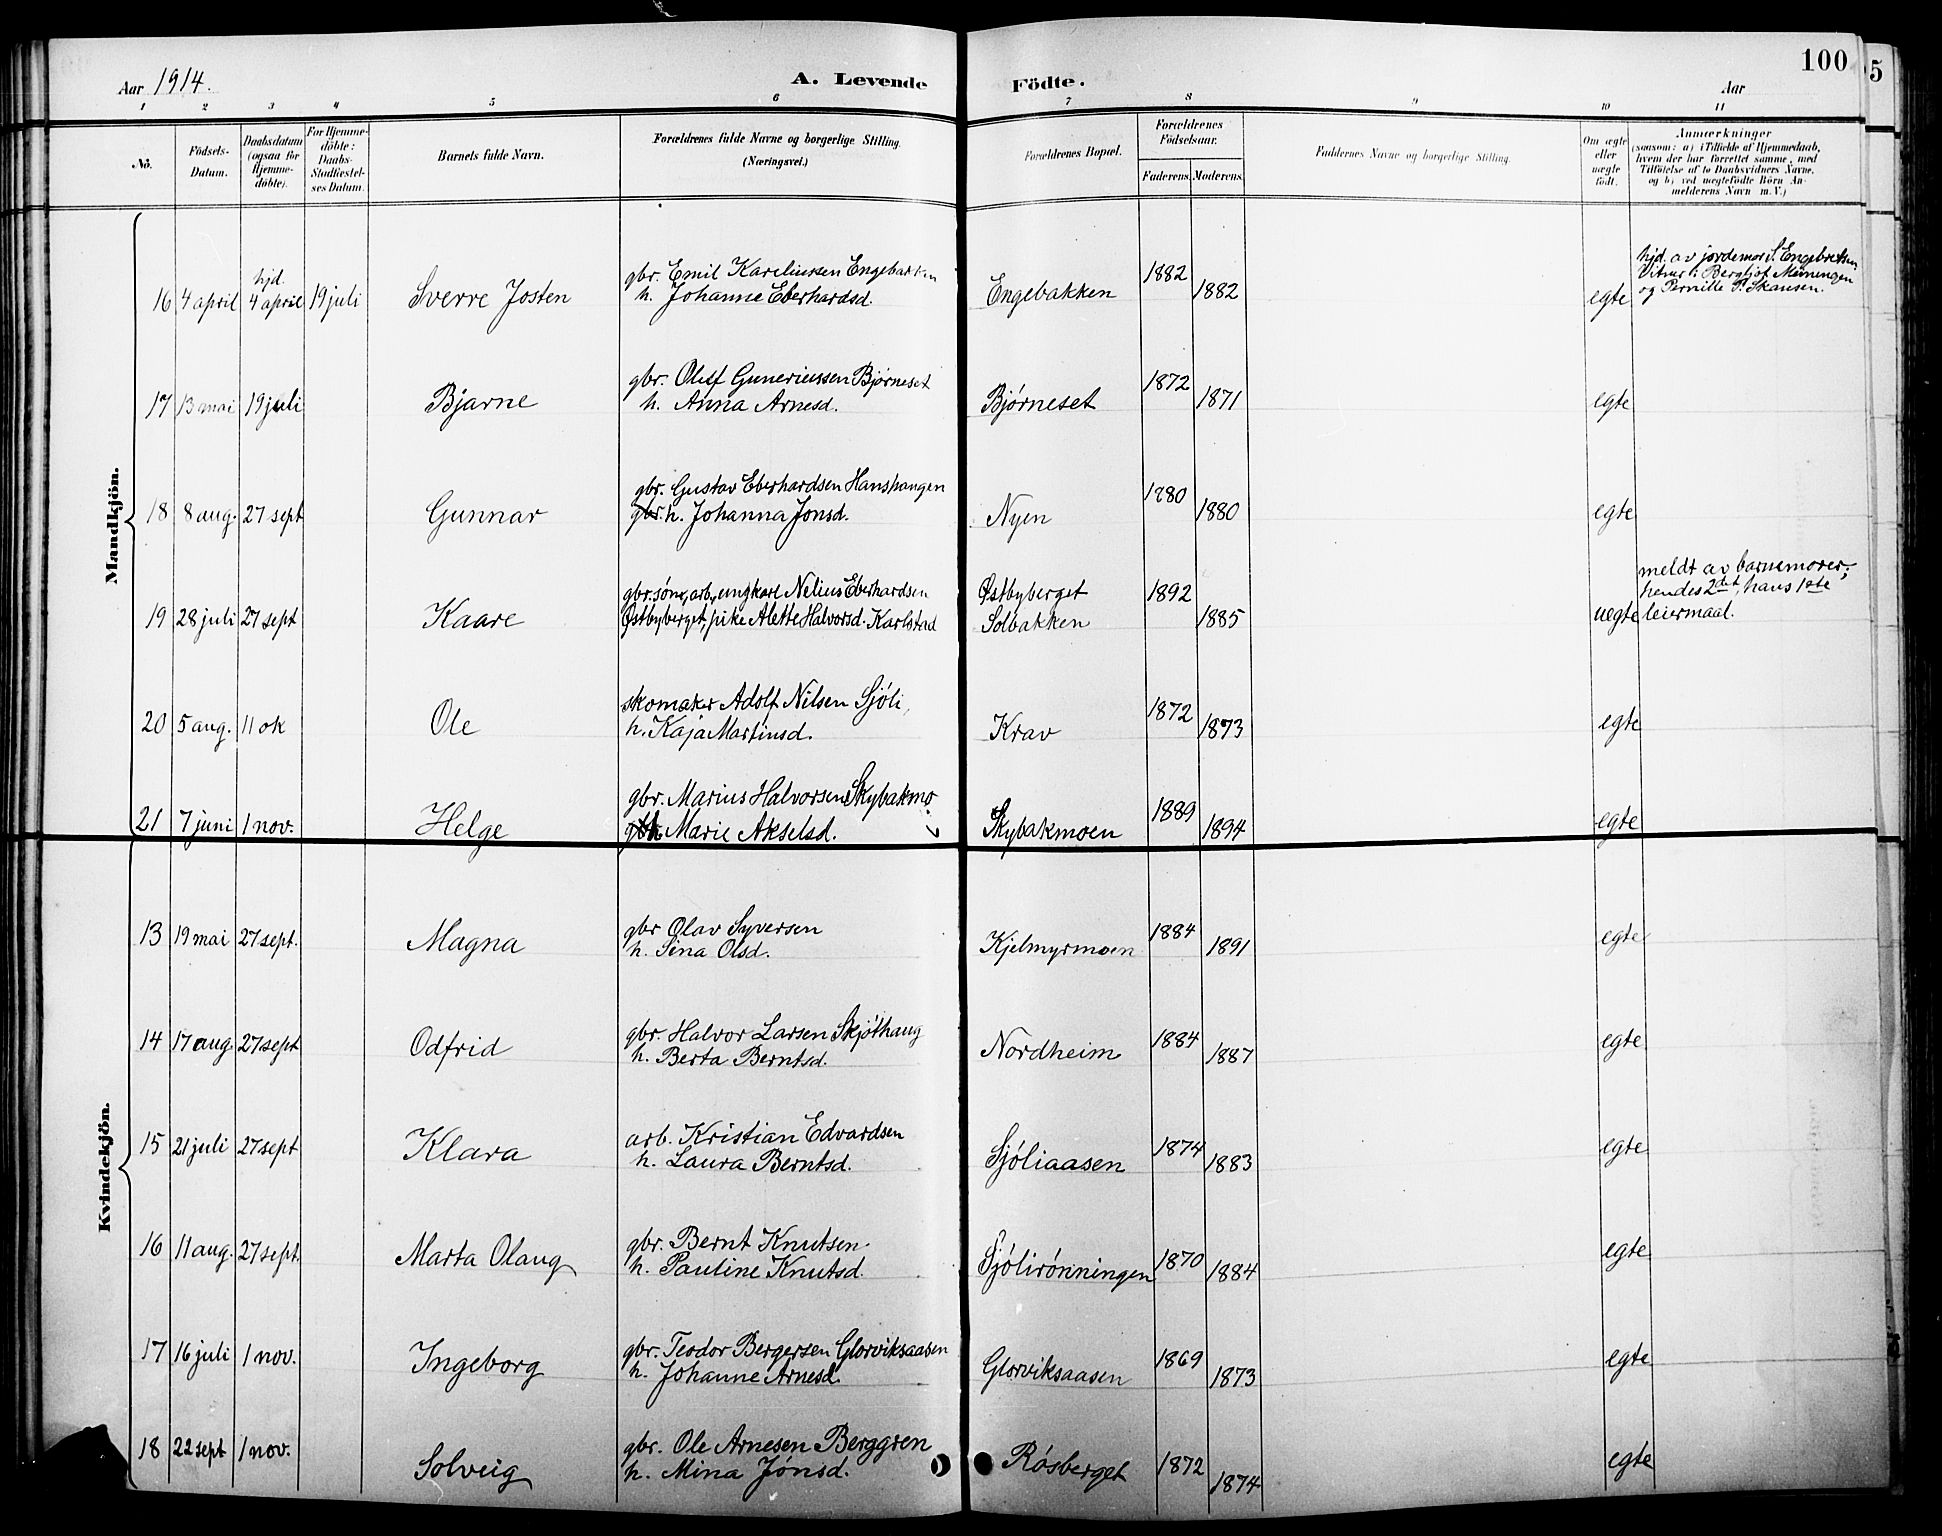 Aar 1914. A. Levende Födte. Aar 100
5
1 2 3 4 5 6 7 8 9 10 11
Nö.
Födsels-
Datum.
Daabsdatum
(ogsaa for
Hjemme-
döbte).
For Hjemme-
döbte:
Daabs-
Stadfæstel-
ses Datum.
Barnets fulde Navn.
Forældrenes fulde Navne og borgerlige Stilling.
(Næringsvei.)
Forældrenes Bopæl.
Forældrenes
Födselsaar.
Faderens. Moderens.
Faddernes Navne og borgerlige Stilling.
Om ægte
eller
uægte
födt.
Anmærkninger
(saasom: a) i Tilfælde af Hjemmedaab,
hvem der har forrettet samme, med
Tilföielse af to Daabsvidners Navne,
og b) ved uægtefödte Börn An-
melderens Navn m. V.)
Mandkjön.
16 4 april hjd. 4 april 19 juli Sverre Josten
gbr. Emil Kareliussen Engebakken
h. Johanne Eberhardsd.
Engebakken 1882 1882 egte
hjd. av jordemor S. Engebretsen.
Vitner: Bergljot Meiningen
og Pernille P. Skansen.
17 13 mai 19 juli Bjarne
gbr. Oluf Guneriussen Bjørneset
h. Anna Arnesd.
Bjørneset 1872 1871 egte
18 8 aug. 27 sept Gunnar
gbr. Gustav Eberhardsen Hanshaugen
gbr. h. Johanna Jonsd.
Nyen 1880 1880 egte
19 28 juli 27 sept Kaare
gbr.søn, arb, ungkarl Nelius Eberhardsen
Østbyberget, pike Alette Halvorsd. Karlstad
Østbyberget 1892
Solbakken 1885 uegte
meldt av barnemoren;
hendes 2det, hans 1ste
leiermaal.
20 5 aug. 11 ok Ole
skomaker Adolf Nilsen Sjøli,
h. Kaja Martinsd.
Krav 1872 1873 egte
21 7 juni 1 nov. Helge
gbr. Marius Halvorsen Skybakmo
h. Marie Akselsd.
Skybakmoen 1889 1894 egte
Kvindekjön.
13 19 mai 27 sept. Magna
gbr Olav Syversen
h. Sina Olsd.
Kjelmyrmoen 1884 1891 egte
14 17 aug 27 sept Odfrid
gbr. Halvor Larsen Skjøthaug
h. Berta Berntsd.
Nordheim 1884 1887 egte
15 21 juli 27 sept Klara
arb. Kristian Edvardsen
h. Laura Berntsd.
Sjøliaasen 1874 1883 egte
16 11 aug. 27 sept. Marta Olaug
gbr. Bernt Knutsen
h. Pauline Knutsd.
Sjølirønningen 1870 1884 egte
17 16 juli 1 nov. Ingeborg
gbr. Teodor Bergersen Glorviksaasen
h. Johanne Arnesd.
Glorviksaasen 1869 1873 egte
18 22 sept 1 nov. Solveig
gbr. Ole Arnesen Berggren
h. Mina Jónsd.
Røsberget 1872 1874 egte